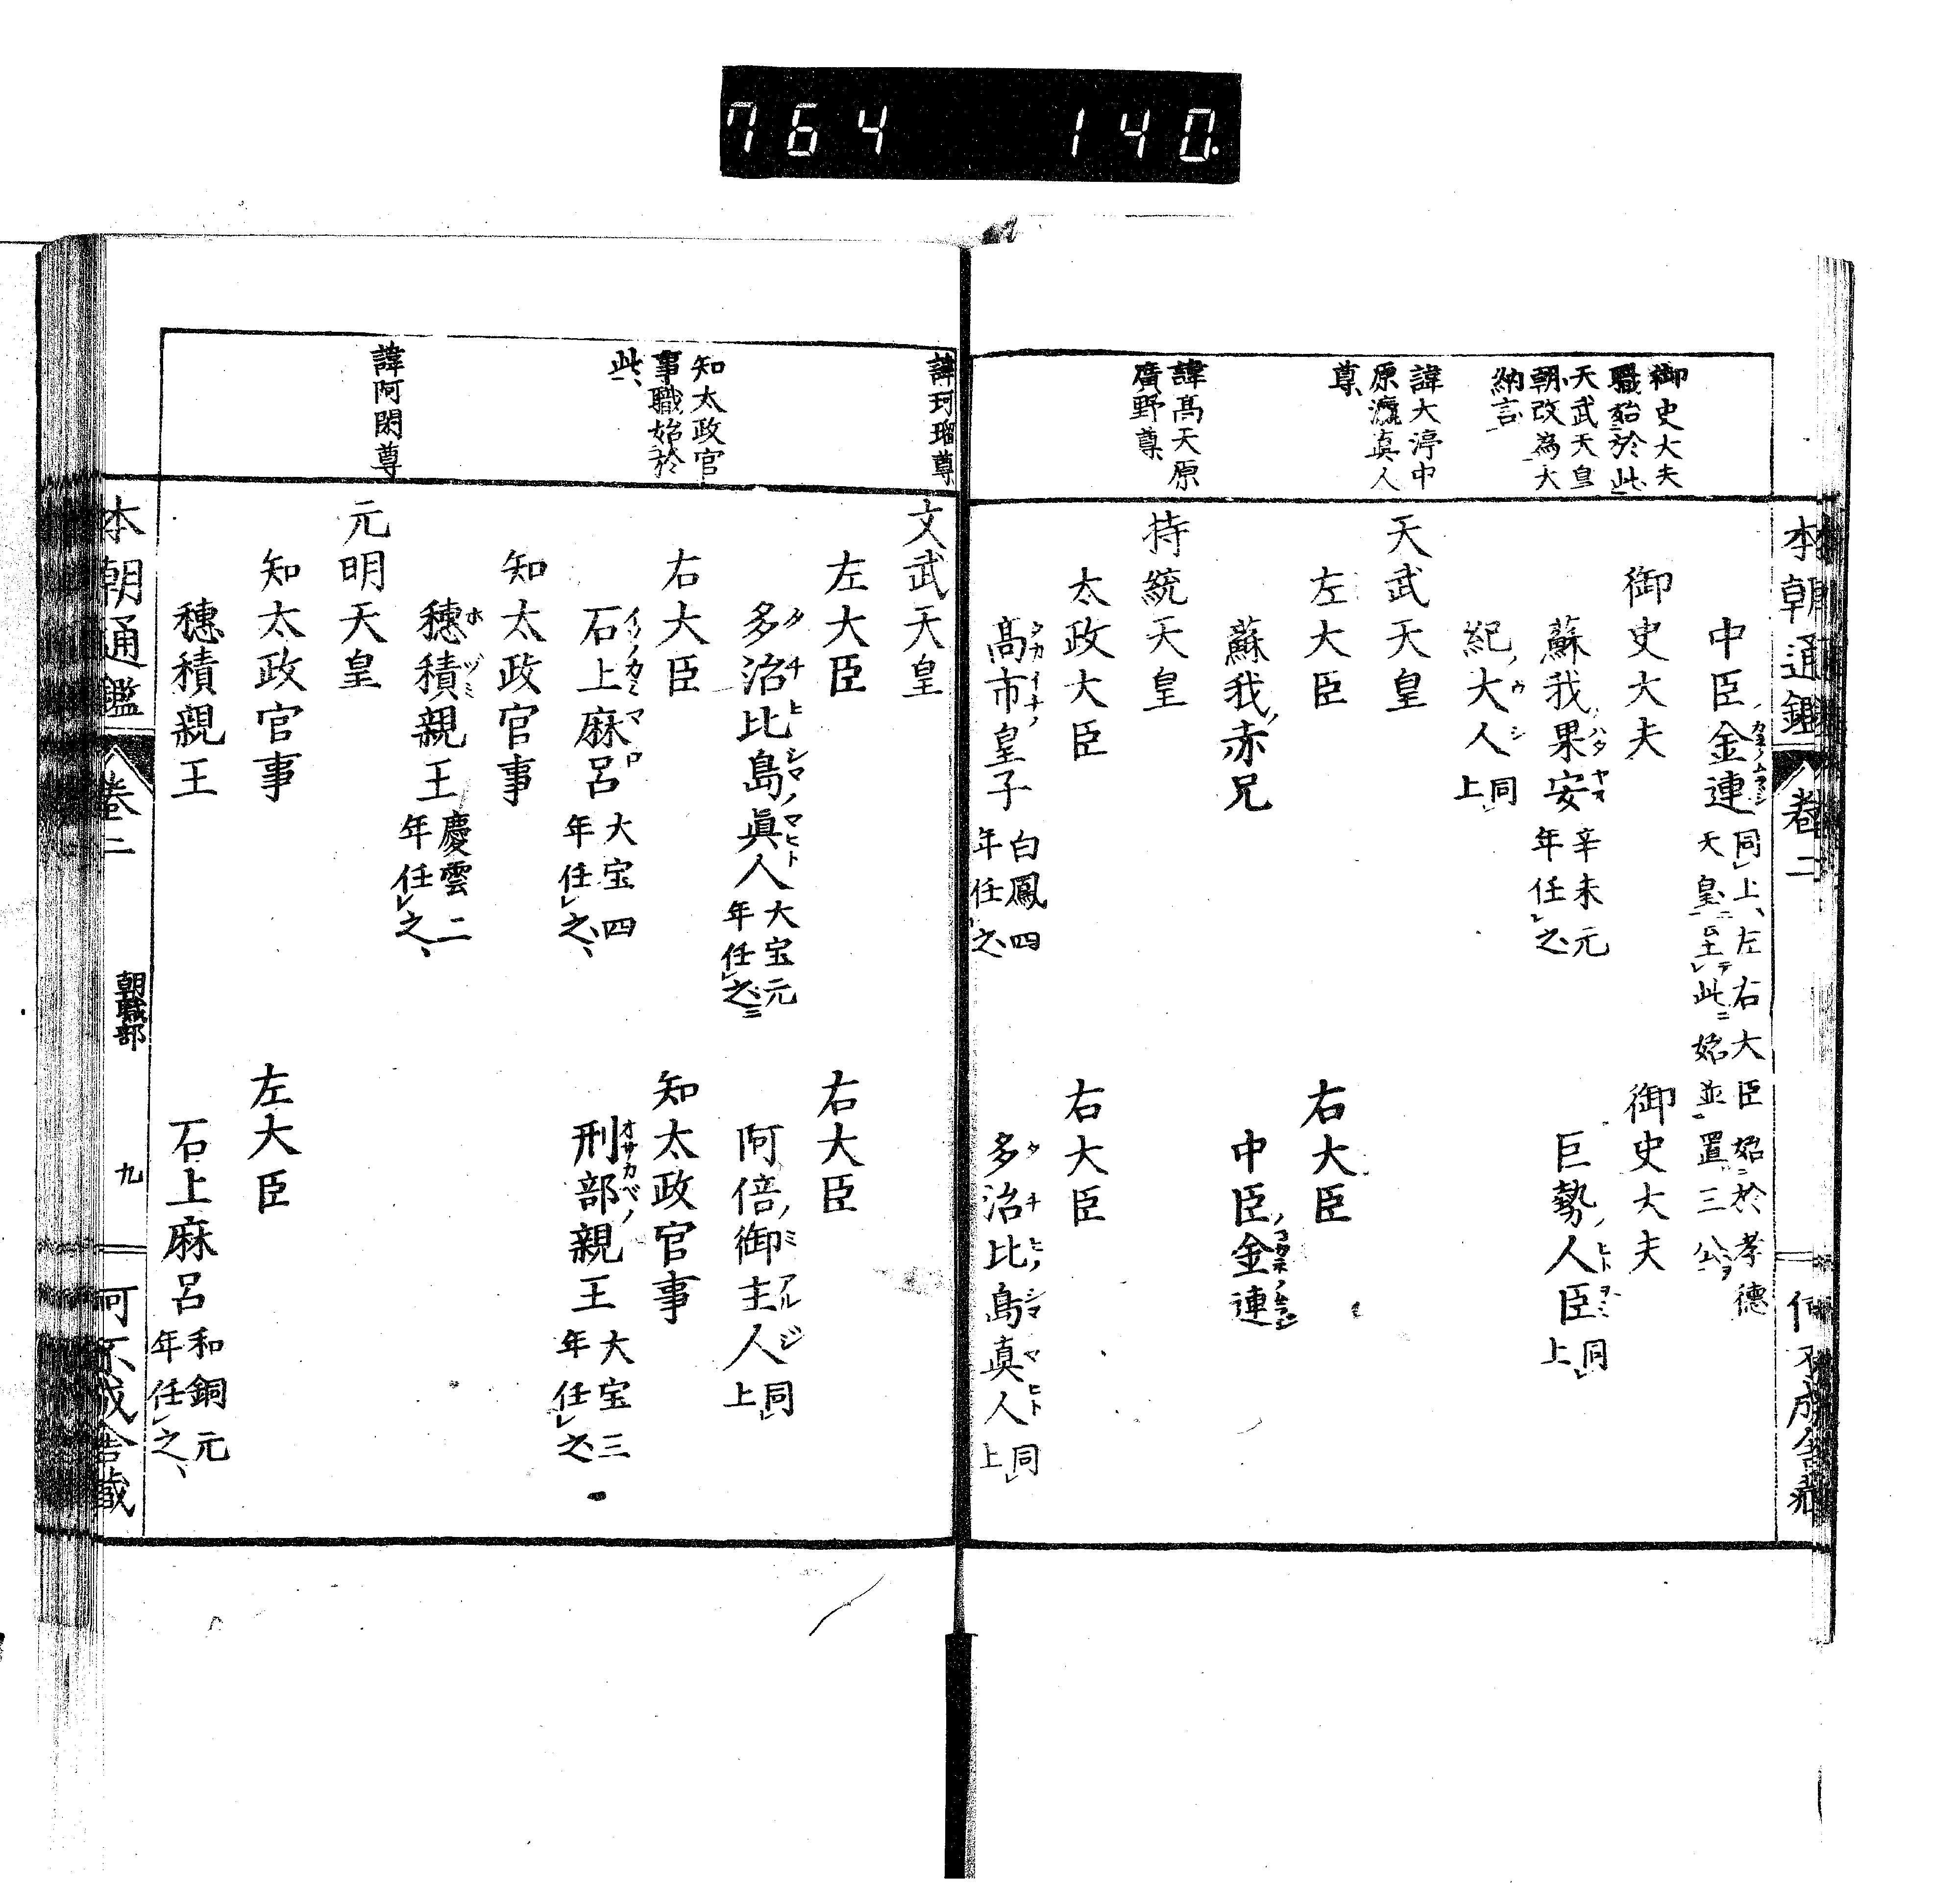 764 140
本朝通鑑 卷二
御史大夫
職始於此
天武天皇
朝改為大
納言
諱大渟中
原瀛真人
尊
諱高天原
廣野尊
中臣金連 同上、左右大臣始於孝德
天皇至此始並置三公
御史大夫
御史大夫
蘇我果安 辛未元
年任之
巨勢人臣 同上
紀大人 同上
天武天皇
左大臣
右大臣
蘇我赤兄
中臣金連
持統天皇
太政大臣
右大臣
高市皇子 白鳳四
年任之
多治比島真人 同上
諱珂瑠尊
知太政官
事職始於
此、
諱阿閇尊
文武天皇
左大臣
右大臣
多治比島眞人 大宝元
年任之
阿倍御主人 同上
右大臣
知太政官事
石上麻呂 大宝四
年任之、
刑部親王 大宝三
年任之
知太政官事
穗積親王 慶雲二
年任之、
元明天皇
知太政官事
左大臣
穗積親王
石上麻呂 和銅元
年任之、
本朝通鑑 卷二 朝職部 九